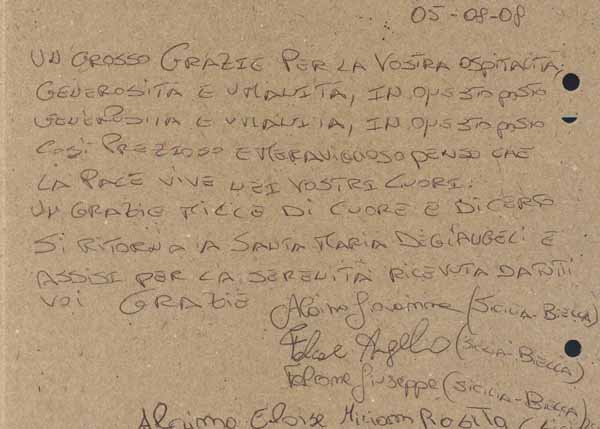 05-08-08
UN GROSSO GRAZIE PER LA VOSTRA OSPITALITÀ,
GENEROSITÀ E UMANITÀ, IN QUESTO POSTO
GENEROSITÀ E UMANITÀ, IN QUESTO POSTO
COSÌ PREZIOSO E MERAVIGLIOSO PENSO CHE
LA PACE VIVE NEI VOSTRI CUORI.
UN GRAZIE MILLE DI CUORE E DI CERTO
SI RITORNA A SANTA MARIA DEGLI ANGELI E
ASSISI PER LA SERENITÀ RICEVUTA DA TUTTI
VOI GRAZIE
(SICILIA-BIELLA)
(SICILIA-BIELLA)
Giuseppe (SICILIA-BIELLA)
Eloise Miriam